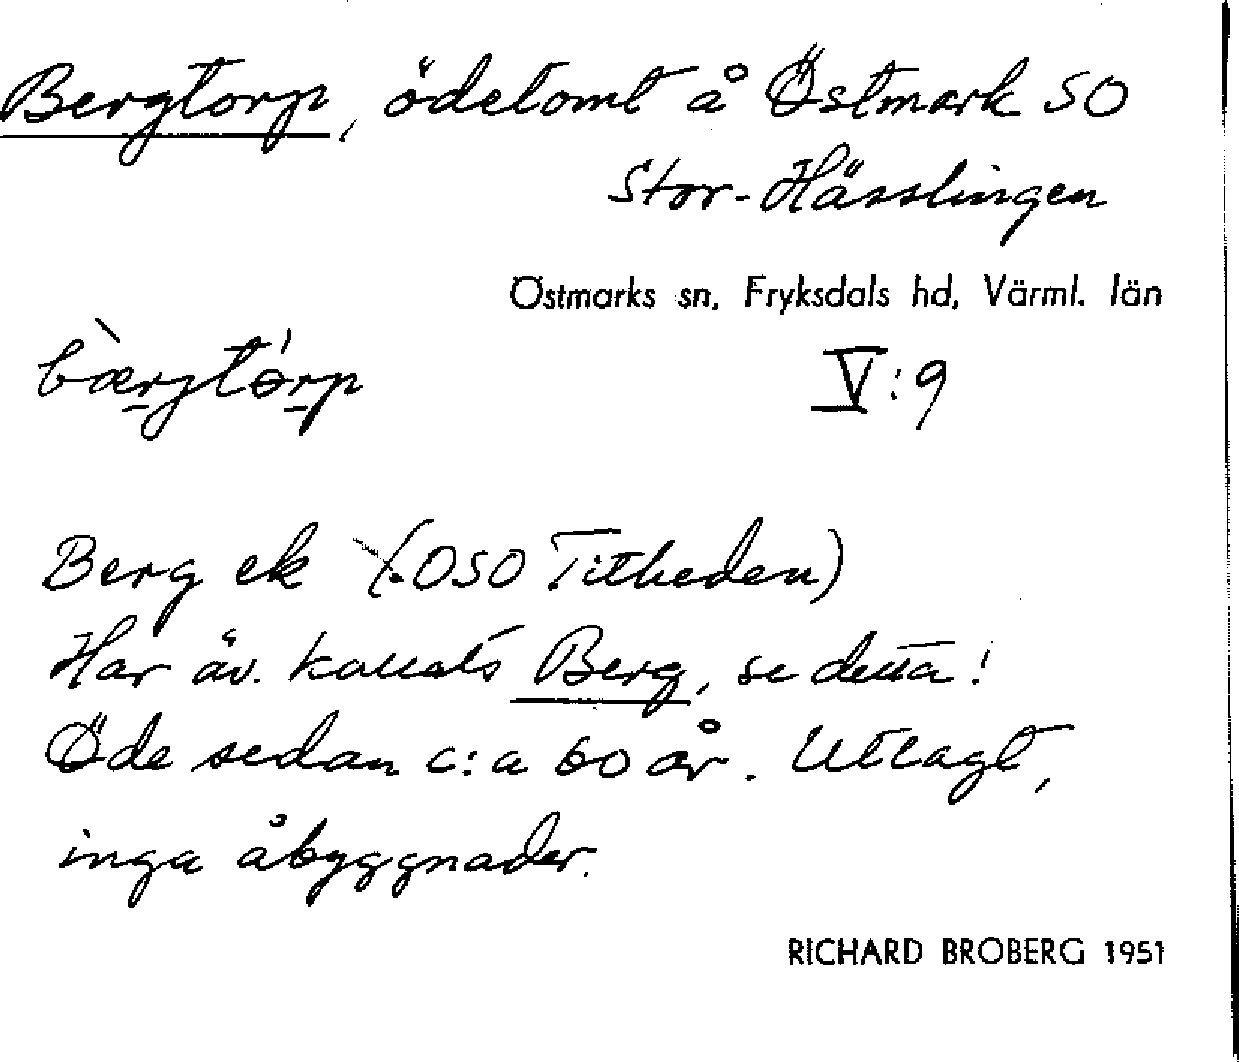 Bergtorp, ödetomt å Östmark SO
Stor-Hässlingen
Östmarks sn, Fryksdals hd, Värml. län
bæ̀rgtórp
V:9
Berg ek (OSO Titheden)
Har äv. kallats Berg, se detta!
Öde sedan c:a 60 år. Utlagt,
inga åbyggnader.
RICHARD BROBERG 1951